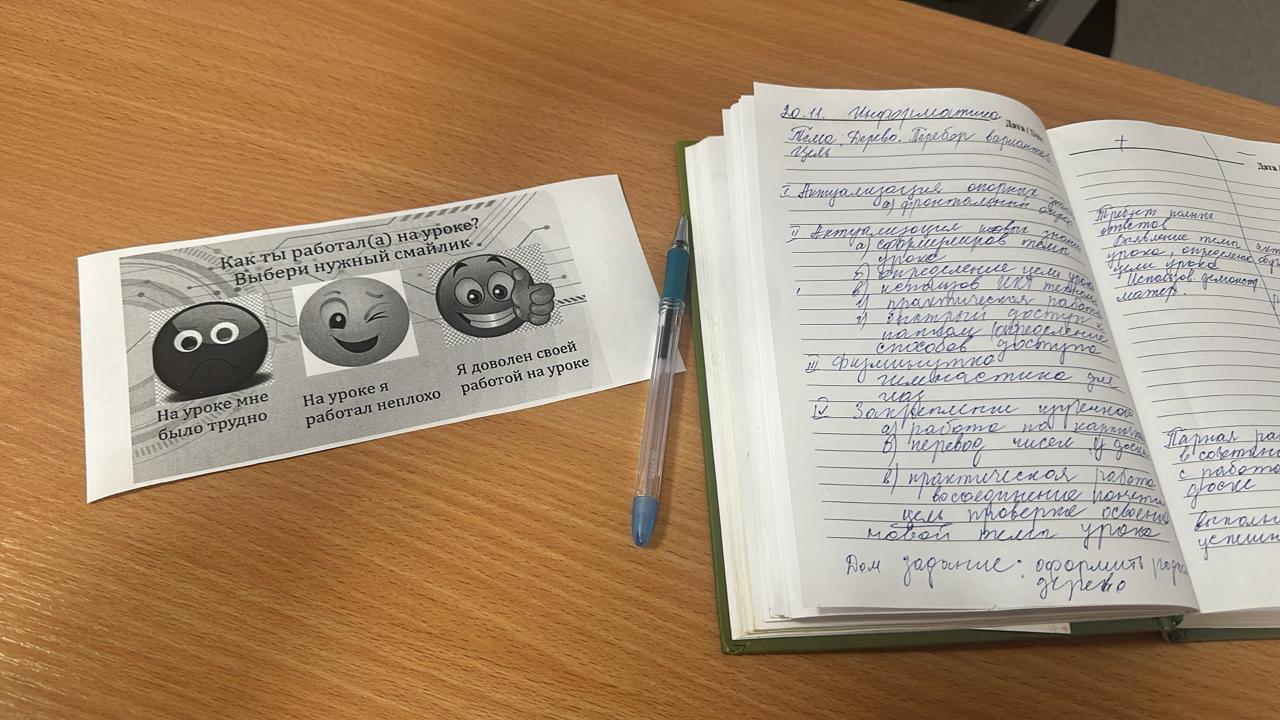 Как ты работал(а) на уроке?
Выбери нужный смайлик
На уроке мне
было трудно
На уроке я
работал неплохо
Я доволен своей
работой на уроке
20.11. Информатика
Дата /
Тема: Дерево. Перебор вариантов
Цель
I Актуализация опорных
а) фронтальный опрос
II Актуализация новых знаний
а) сформиров темы
урока
б) определение цели урока
в) использов ИКТ
г) практическая работа
быстрый доступ к
папкам (определение
способов доступа
III Физминутка
гимнастика для
глаз
IV Закрепление изученного
а) работа по
б) перевод чисел у доски
в) практическая работа
воссоединение
цель проверка освоения
новой темы урока
Дом задание: оформить
дерево
+
Дата
Требует полных
ответов
темы
урока определение
цели урока
Использов демонстр
матер.
Парная
в сочетании
с работой
доске